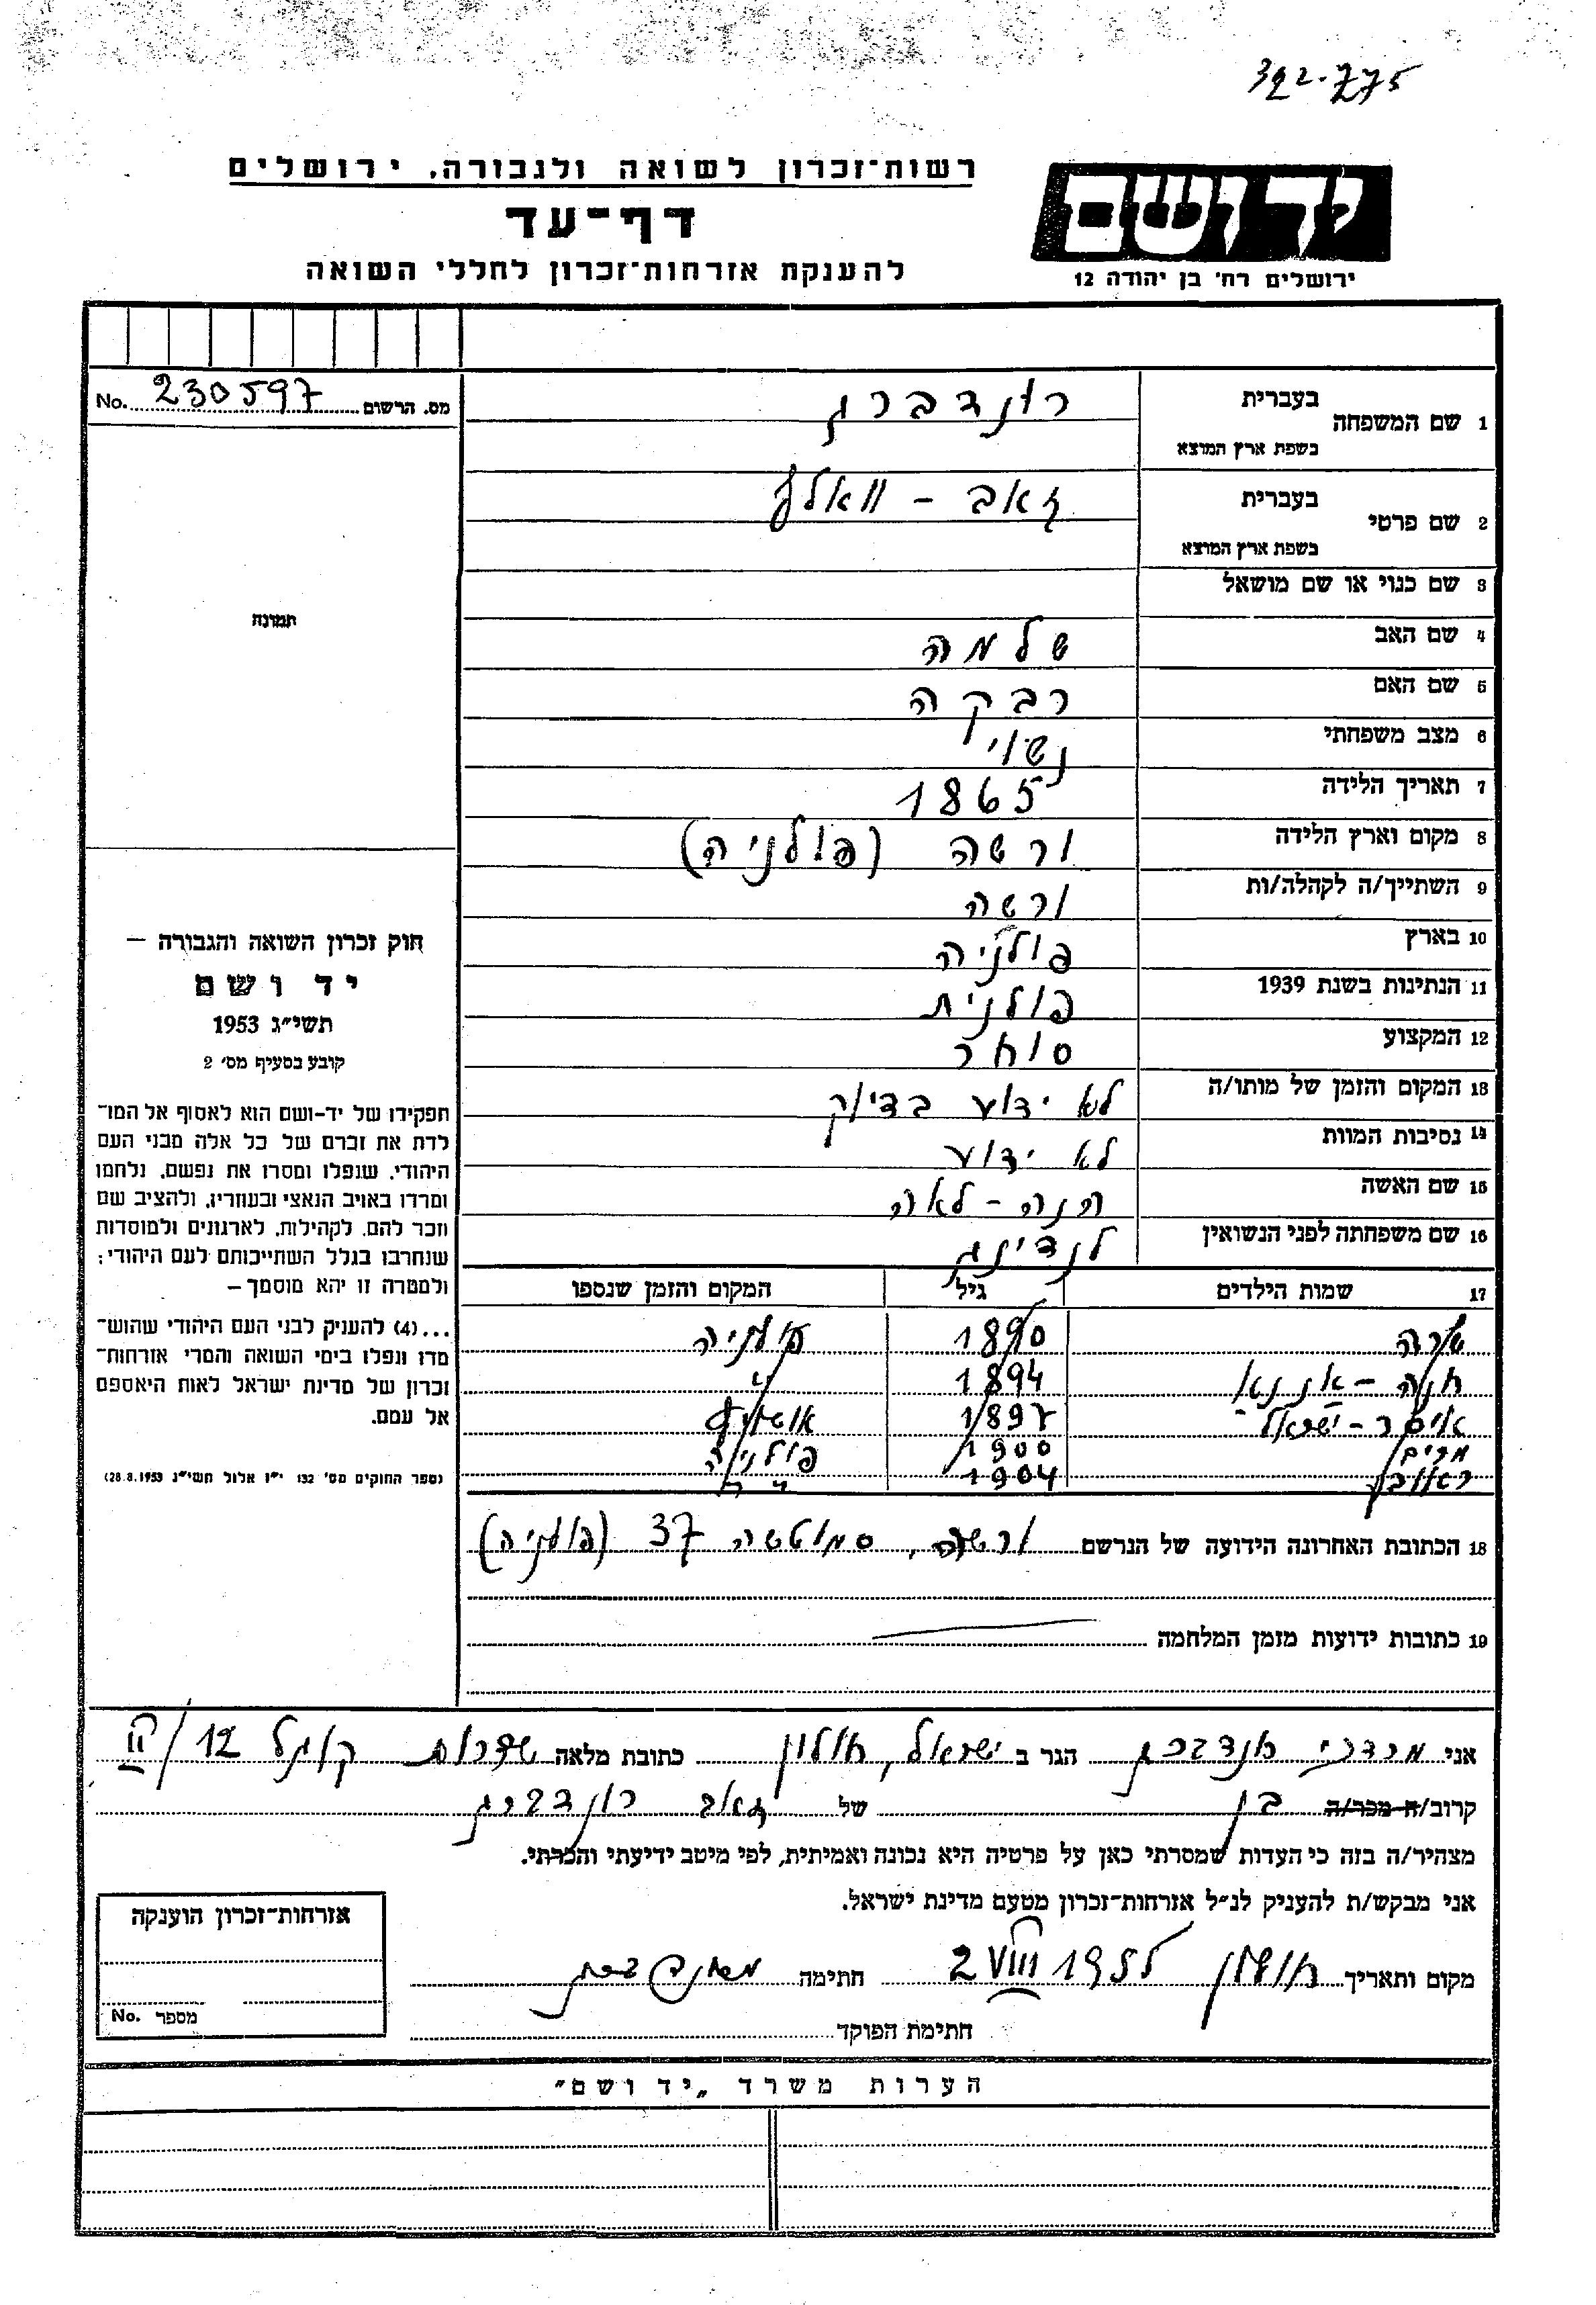 392.775
רשות־זכרון לשואה ולגבורה, ירושלים
דף־עד
להענקת אזרחות־זכרון לחללי השואה
יד ושם
ירושלים רח׳ בן יהודה 12
מס. הרשום 230597 No.
1 שם המשפחה
בעברית רונדברג
בשפת ארץ המוצא
2 שם פרטי
בעברית זאב - וואלף
בשפת ארץ המוצא
3 שם כנוי או שם מושאל
4 שם האב שלמה
5 שם האם רבקה
6 מצב משפחתי נשוי
7 תאריך הלידה 1865
8 מקום וארץ הלידה ורשה (פולניה)
9 השתייך/ה לקהלה/ות ורשה
10 בארץ פולניה
11 הנתינות בשנת 1939 פולנית
12 המקצוע סוחר
13 המקום והזמן של מותו/ה לא ידוע בדיוק
14 נסיבות המוות לא ידוע
15 שם האשה חנה - לאה
16 שם משפחתה לפני הנשואין לנדינג
17 שמות הילדים גיל המקום והזמן שנספו
שרה 1890 פולניה
חנה - אננא 1894 "
איסר - ישראל 1897
מרים 1900 פולניה
ראובן 1904 "
18 הכתובת האחרונה הידועה של הנרשם ורשה, סמוטשה 37 (פולניה)
19 כתובות ידועות מזמן המלחמה
תמונה
חוק זכרון השואה והגבורה —
יד ושם
תשי״ג 1953
קובע בסעיף מס׳ 2
תפקידו של יד-ושם הוא לאסוף אל המו־
לדת את זכרם של כל אלה מבני העם
היהודי, שנפלו ומסרו את נפשם, נלחמו
ומרדו באויב הנאצי ובעוזריו, ולהציב שם
וזכר להם, לקהילות, לארגונים ולמוסדות
שנחרבו בגלל השתייכותם לעם היהודי;
ולמטרה זו יהא מוסמך —
...(4) להעניק לבני העם היהודי שהוש־
מדו ונפלו בימי השואה והמרי אזרחות־
זכרון של מדינת ישראל לאות היאספם
אל עמם.
(ספר החוקים מס׳ 132 י״ז אלול תשי״ג 28.8.1953)
אני מרדכי רונדברג הגר ב ישראל, חולון כתובת מלאה שדרות קוגל 12/
קרוב/ה מכר/ה בן של זאב רונדברג
מצהיר/ה בזה כי העדות שמסרתי כאן על פרטיה היא נכונה ואמיתית, לפי מיטב ידיעתי והכרתי.
אני מבקש/ת להעניק לנ״ל אזרחות־זכרון מטעם מדינת ישראל.
מקום ותאריך חולון 2 VIII 1955 חתימה
חתימת הפוקד
אזרחות־זכרון הוענקה
מספר No.
הערות משרד „יד ושם״